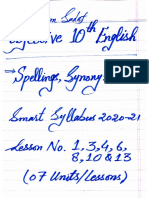 Objective 10th English
→ Spellings, Synony
Smart Syllabus 2020-21
Lesson No. 1, 3, 4, 6,
8, 10 & 13
(07 Units/Lessons)